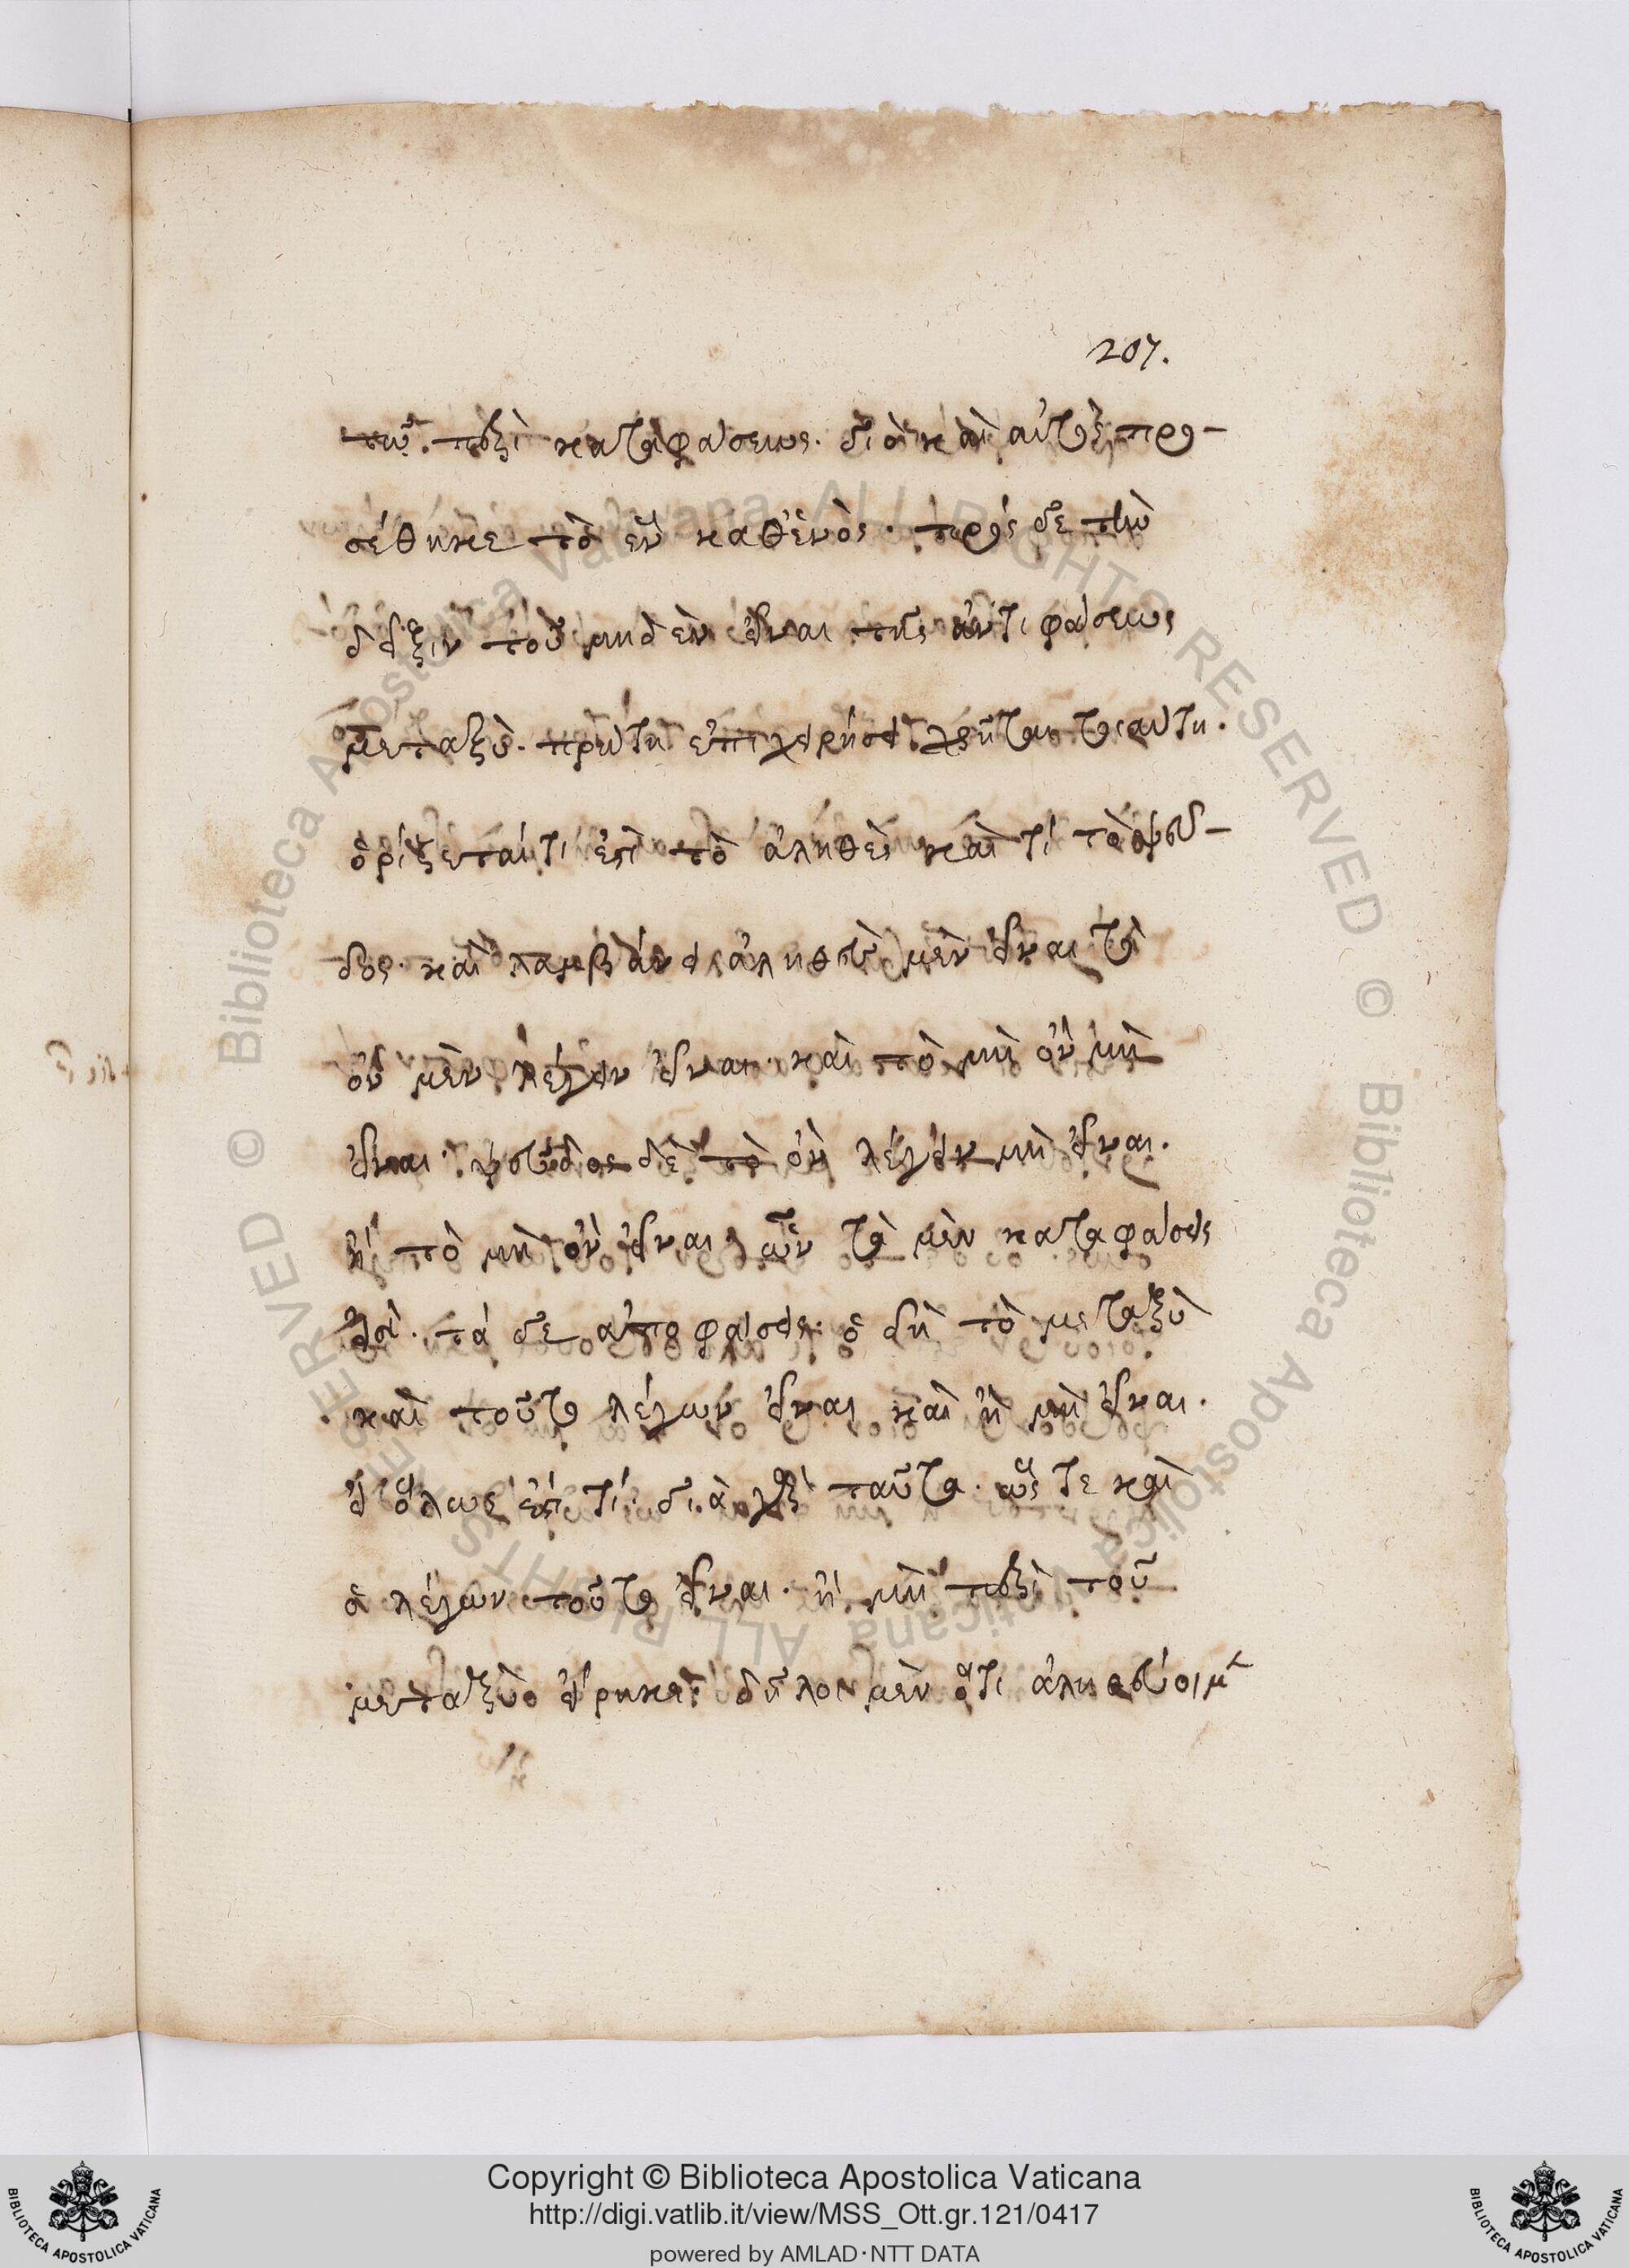 207.
τῶ. περὶ καταφάσεως. διὸ καὶ αὐτὸς προ-
σέθηκε τὸ ἓν καθἑνὸς. πρός δε τὴν
δεῖξιν τοῦ μηδὲν εἶναι τῆς ἀντιφάσεως
μεταξὺ. πρώτη ἐπιχειρήσει χρῆται τοιαύτη.
ὁρίζεται τί ἐστὶ τὸ ἀληθὲς καὶ τί τὸ ψεῦ-
δος. καὶ λαμβάνει ἀληθεὺ μὲν εἶναι τὸ
ὂν μὲν λέγειν εἶναι. καὶ τὸ μὴ ὂν μὴ
εἶναι. ψεῦδος δὲ τὸ ὂν λέγειν μὴ εἶναι.
ἢ τὸ μὴ ὂν εἶναι, ὧν τὰ μὲν καταφάσεις
εἰσὶ. τά δε ἀποφάσεις. ὁ δὴ τὸ μεταξὺ
καὶ τοῦτο λέγων εἶναι καὶ ἢ μὴ εἶναι.
εἰ ὅλως ἐστί τί. διὰ γὰρ ταῦτα. ὥς τε καὶ
ὁ λέγων τοῦτο εἶναι. ἢ μὴ περὶ τοῦ
μεταξὺ ὃ εἴρηκε δῆλον μὲν ὅτι ἀληθεύοι μ
Copyright © Biblioteca Apostolica Vaticana
http://digi.vatlib.it/view/MSS_Ott.gr.121/0417
powered by AMLAD·NTT DATA
BIBLIOTECA APOSTOLICA VATICANA
BIBLIOTECA APOSTOLICA VATICANA
© Biblioteca Apostolica Vaticana ALL RIGHTS RESERVED © Biblioteca Apostolica Vaticana ALL RIGHTS RESERVED